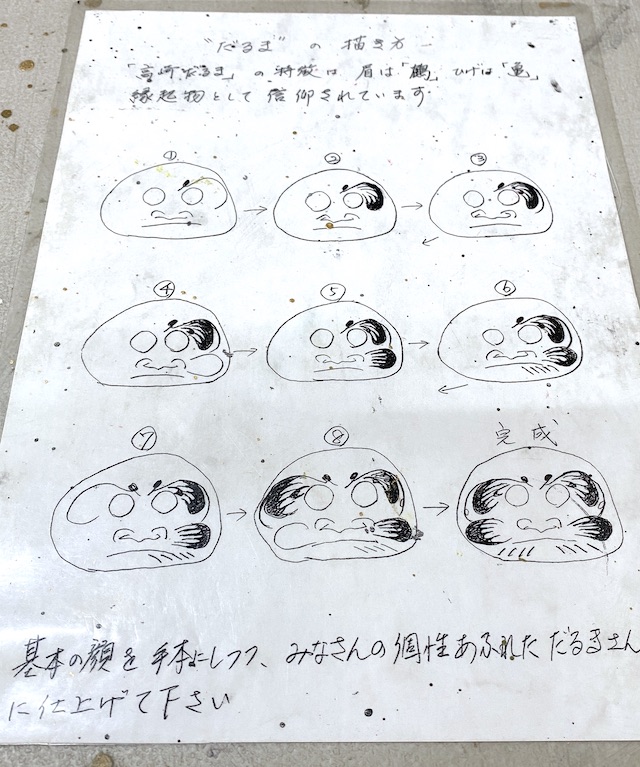 "だるま" の 描き方
「高崎だるま」の特徴は 眉は「鶴」ひげは「亀」
縁起物として 信仰されています
① ② ③
④ ⑤ ⑥
⑦ ⑧ 完成
基本の顔を手本にしつつ、みなさんの個性あふれただるまさん
に仕上げて下さい